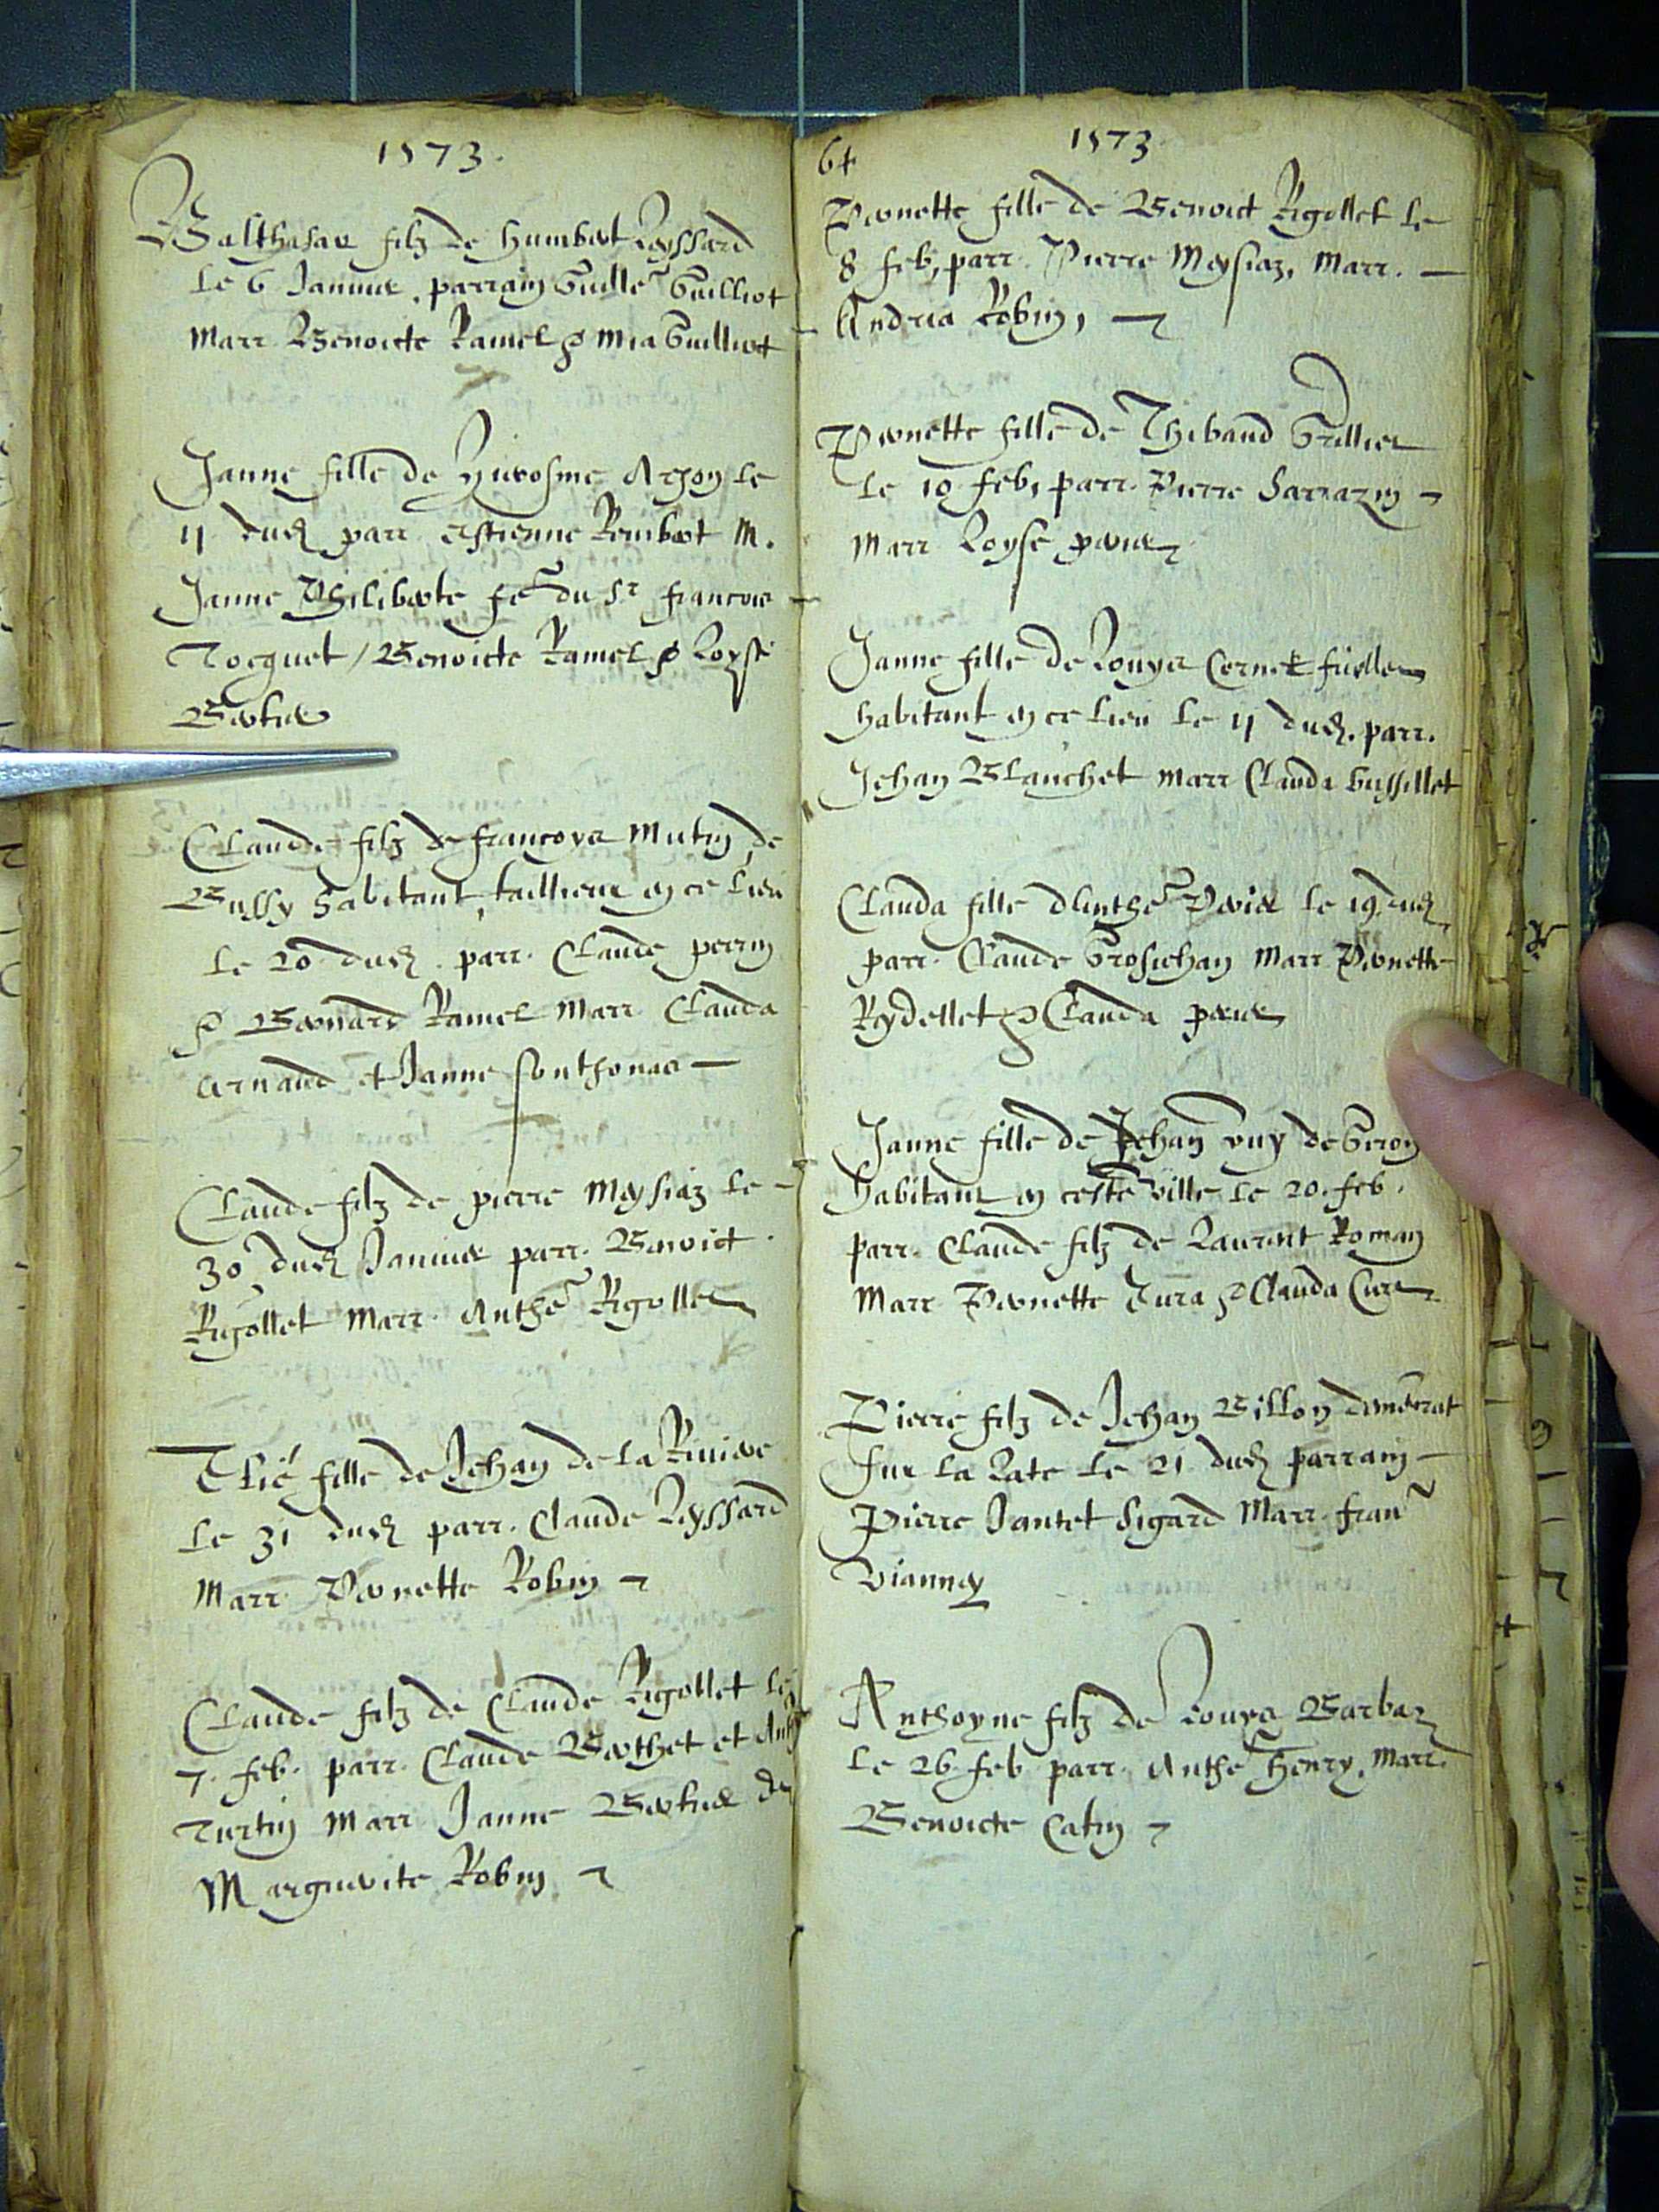 1573.
Balthasar filz de Humbert Reyssard
le 6 Januier, parrain Guille Guilliot
Marr Benoicte Ramel & Mia Guilliot
Janne fille de Hierosme Arzon le
11 dud parr Estienne Rembert M.
Janne Philiberte fe du Sr Francois
Tocquet / Benoicte Ramel & Loyse
Bertier
Claude filz de Francoys Mutin de
Bussy habitant, taillieur en ce lieu
le 20 dud. parr. Claude perrin
& Bernard Ramel Marr Clauda
Arnaud et Janne Sonthonas
Claude filz de pierre Meysiaz le
30 dud Januier parr. Benoict
Rigollet Marr. Anthe Rigollet
fille de Jehan de la Riuiere
le 31 dud parr. Claude Reyssard
Marr Pernette Robin
Claude filz de Claude Rigollet le
7. feb. parr. Claude Berthet et Anth
Turtin Marr Janne Bertier
Marguerite Robin
64
1573.
Pernette fille de Benoict Rigollet le
8 feb, parr. Pierre Meysiaz, Marr.
Andrea Robin,
Pernette fille de Thibaud Grillier
le 10 feb, parr. Pierre Sarrazin
Marr Loyse
Janne fille de Louys Cornet
habitant en ce lieu le 11 dud. parr.
Jehan Blanchet Marr Clauda Gussillet
Clauda fille d'Anthe le 19 dud
parr. Claude Grosjehan Marr Pernette
Reydellet & Clauda
Janne fille de Jehan vuy de Geron
habitant en ceste ville le 20. feb.
parr. Claude filz de Laurent Roman
Marr Pernette Jura & Clauda
Pierre filz de Jehan Billon
sur la Rate le 21 dud parrain
Pierre Jantet Sigard Marr. fran
Vianney
Anthoyne filz de Louys Barbaz
le 26 feb parr. Anthe Henry, Marr.
Benoicte Catin